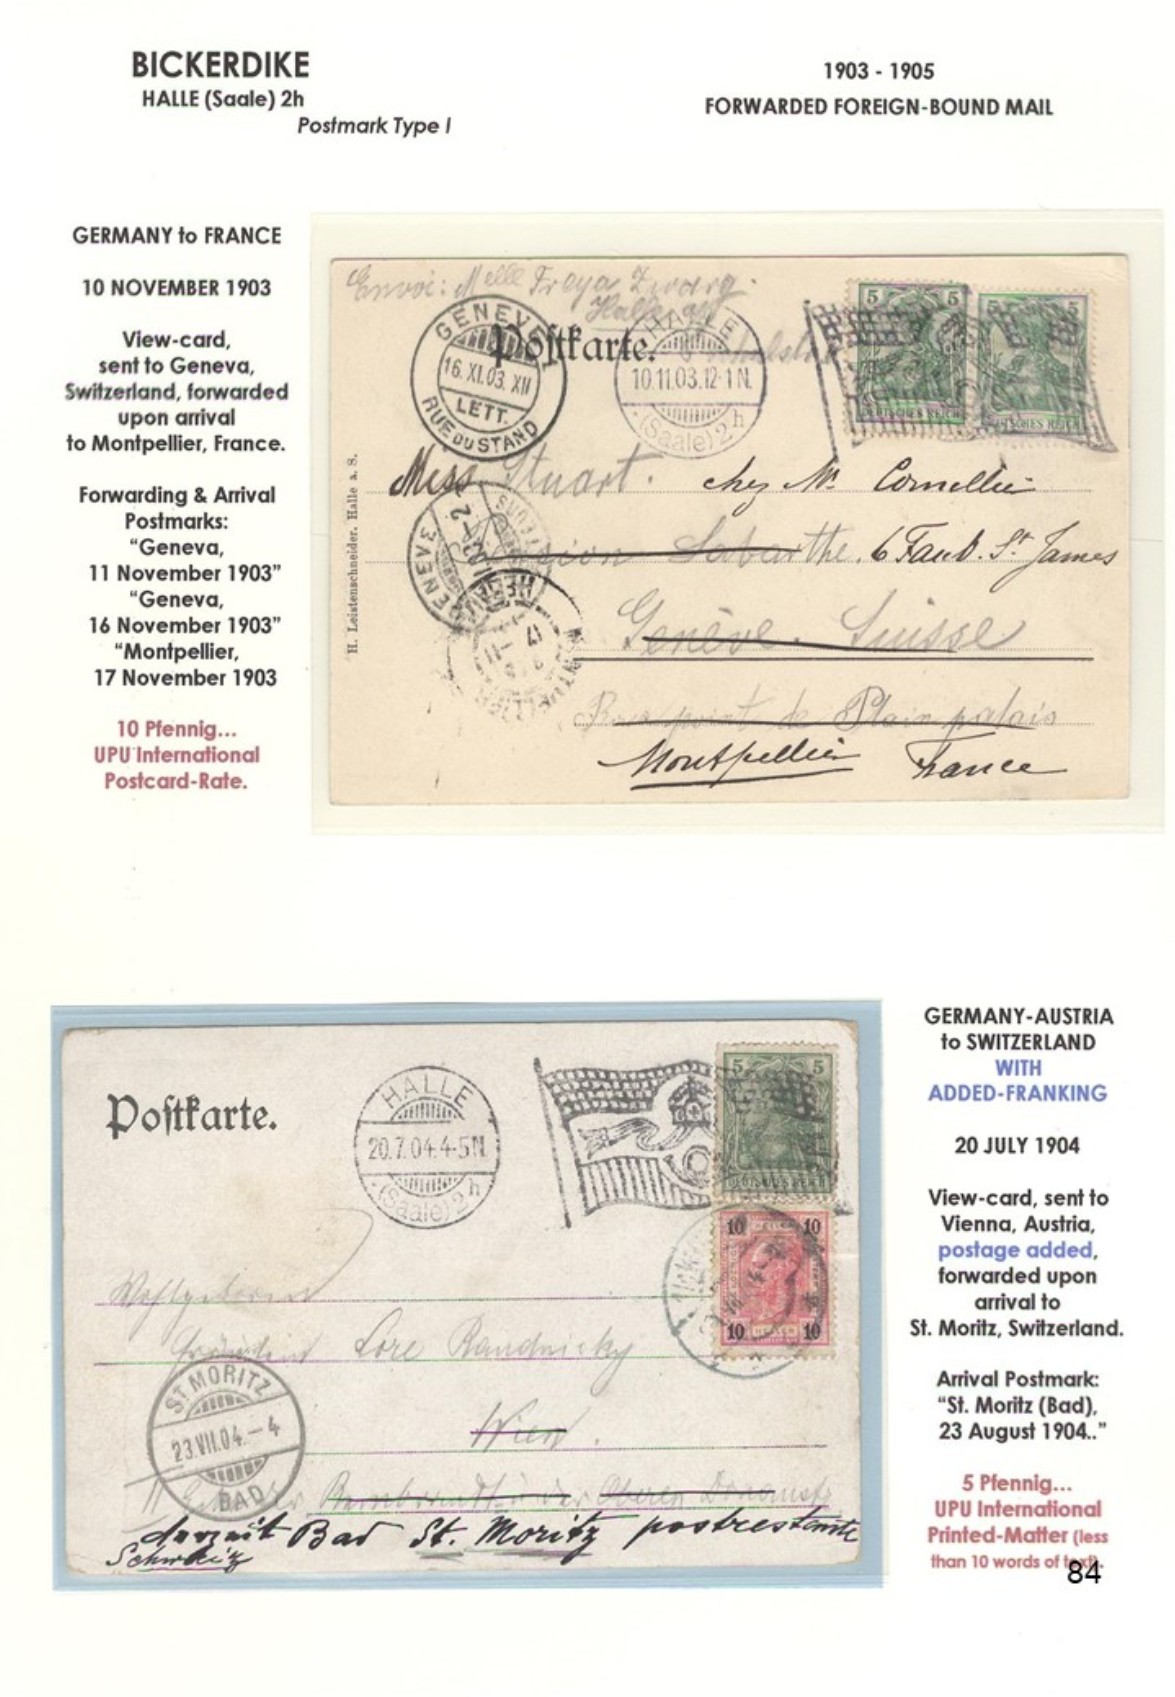 BICKERDIKE
HALLE (Saale) 2h
Postmark Type I
1903 - 1905
FORWARDED FOREIGN-BOUND MAIL
GERMANY to FRANCE
10 NOVEMBER 1903
View-card,
sent to Geneva,
Switzerland, forwarded
upon arrival
to Montpellier, France.
Forwarding & Arrival
Postmarks:
“Geneva,
11 November 1903”
“Geneva,
16 November 1903”
“Montpellier,
17 November 1903
10 Pfennig...
UPU International
Postcard-Rate.
Envoi: Melle Freya Zwarg.
Halle a/S
Postkarte.
GENEVE
16.XI.03. XII
LETT.
RUE DU STAND
HALLE
10.11.03.12-1 N.
(Saale) 2h
5 5
DEUTSCHES REICH
5 5
DEUTSCHES REICH
H. Leistenschneider, Halle a. S.
Miss Stuart. chez Mr Comellier
Pension Labarthe. 6 Faub. St James
GENEVE
Genève. Suisse
Rond point de Plain palais
Montpellier France
GERMANY-AUSTRIA
to SWITZERLAND
WITH
ADDED-FRANKING
20 JULY 1904
View-card, sent to
Vienna, Austria,
postage added,
forwarded upon
arrival to
St. Moritz, Switzerland.
Arrival Postmark:
“St. Moritz (Bad),
23 August 1904..”
5 Pfennig...
UPU International
Printed-Matter (less
than 10 words of text).
84
Postkarte.
HALLE
20.7.04.4-5N.
(Saale) 2h
5 5
DEUTSCHES REICH
10 HELLER 10
10 HELLER 10
Wohlgeboren
Fräulein Lore Raudnicky
ST. MORITZ
23.VII.04.–4
BAD
Wien.
Rembrandt u der Oberen Donaustr
derzeit Bad St. Moritz postrestante
Schweiz